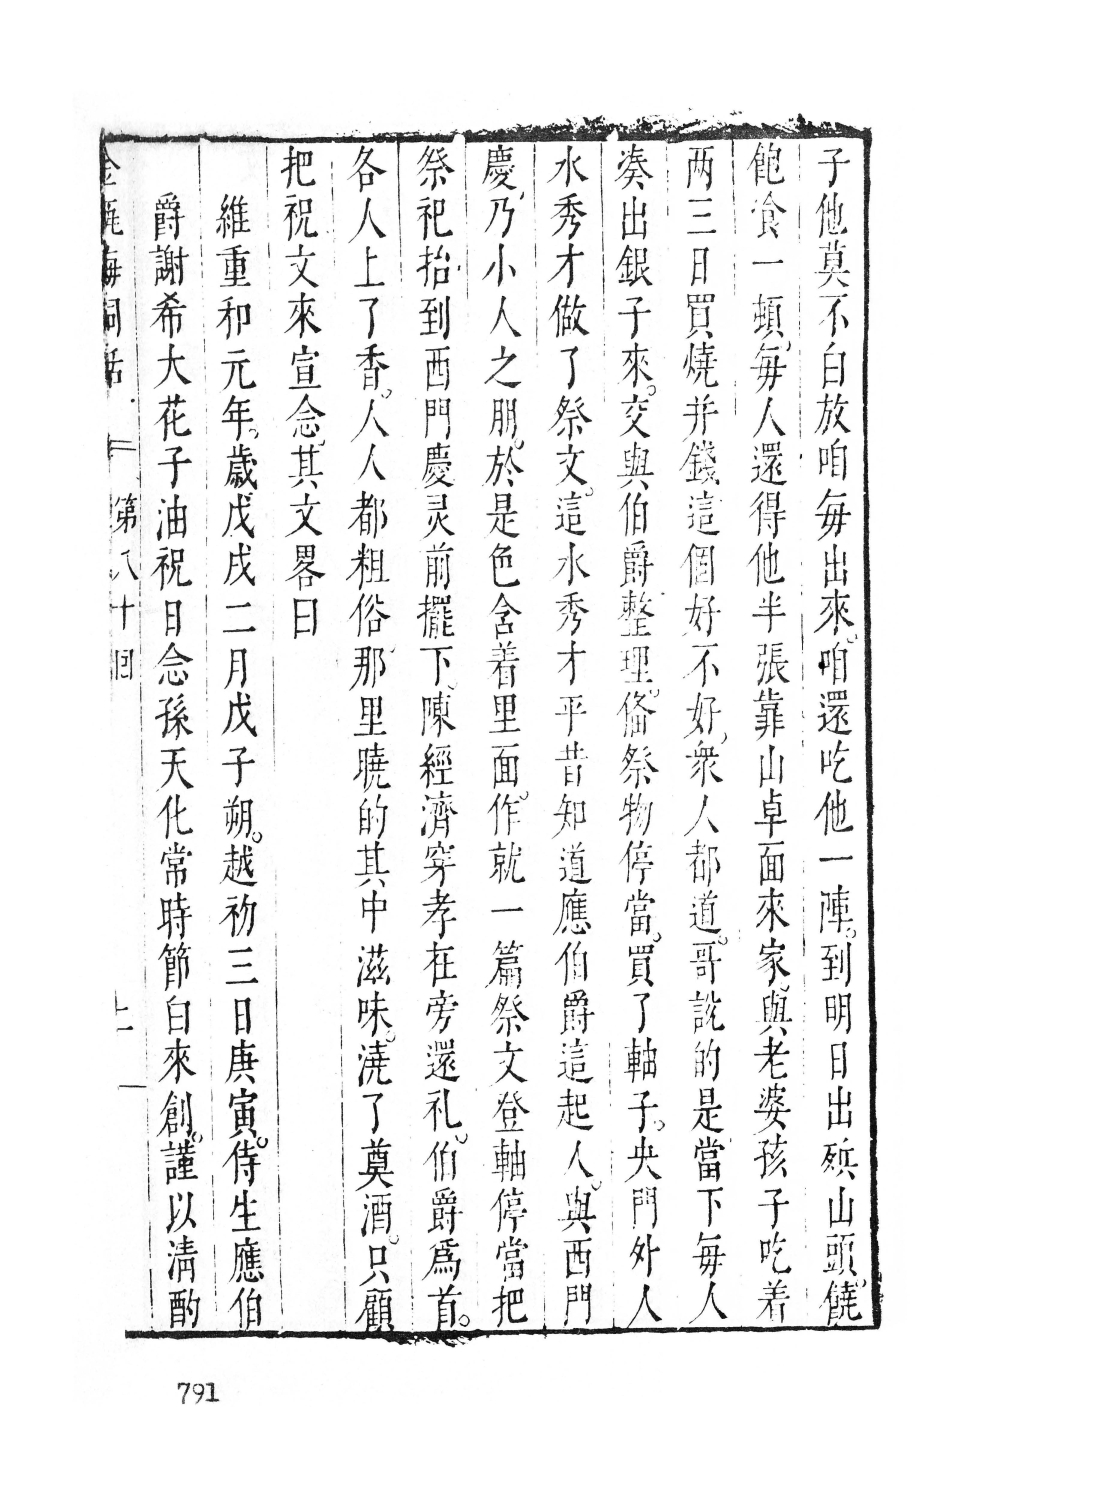 子他莫不白放咱每出來。咱還吃他一陣。到明日出殯山頭。饒
飽飡一頓。每人還得他半張靠山卓面來家。與老婆孩子吃着
两三日買燒并錢。這個好不好。衆人都道。哥說的是。當下每人
湊出銀子來。交與伯爵整理。俻祭物停當。買了軸子。央門外人
水秀才做了祭文。這水秀才平昔知道應伯爵這起人。與西門
慶乃小人之朋。於是色含着里面。作就一篇祭文登軸停當把
祭祀抬到西門慶灵前擺下。陳經濟穿孝在旁還礼。伯爵爲首。
各人上了香。人人都粗俗。那里曉的其中滋味。澆了奠酒。只顧
把祝文來宣念。其文畧曰
維重和元年。歲戊戌二月戊子朔。越初三日庚寅。侍生應伯
爵謝希大花子油祝日念孫天化常時節白來創。謹以清酌
金瓶梅詞話
第八十回
791